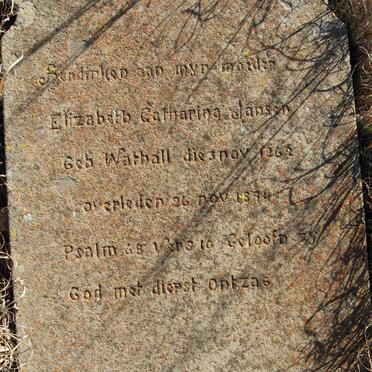 aan myn moeder
Elizabeth Catharina Jansen
Geb Wathall die 3 nov 1868
overleden 26 nov
Psalm 68 Vers 10 Geloofd Zy
God met diepst Ontzag